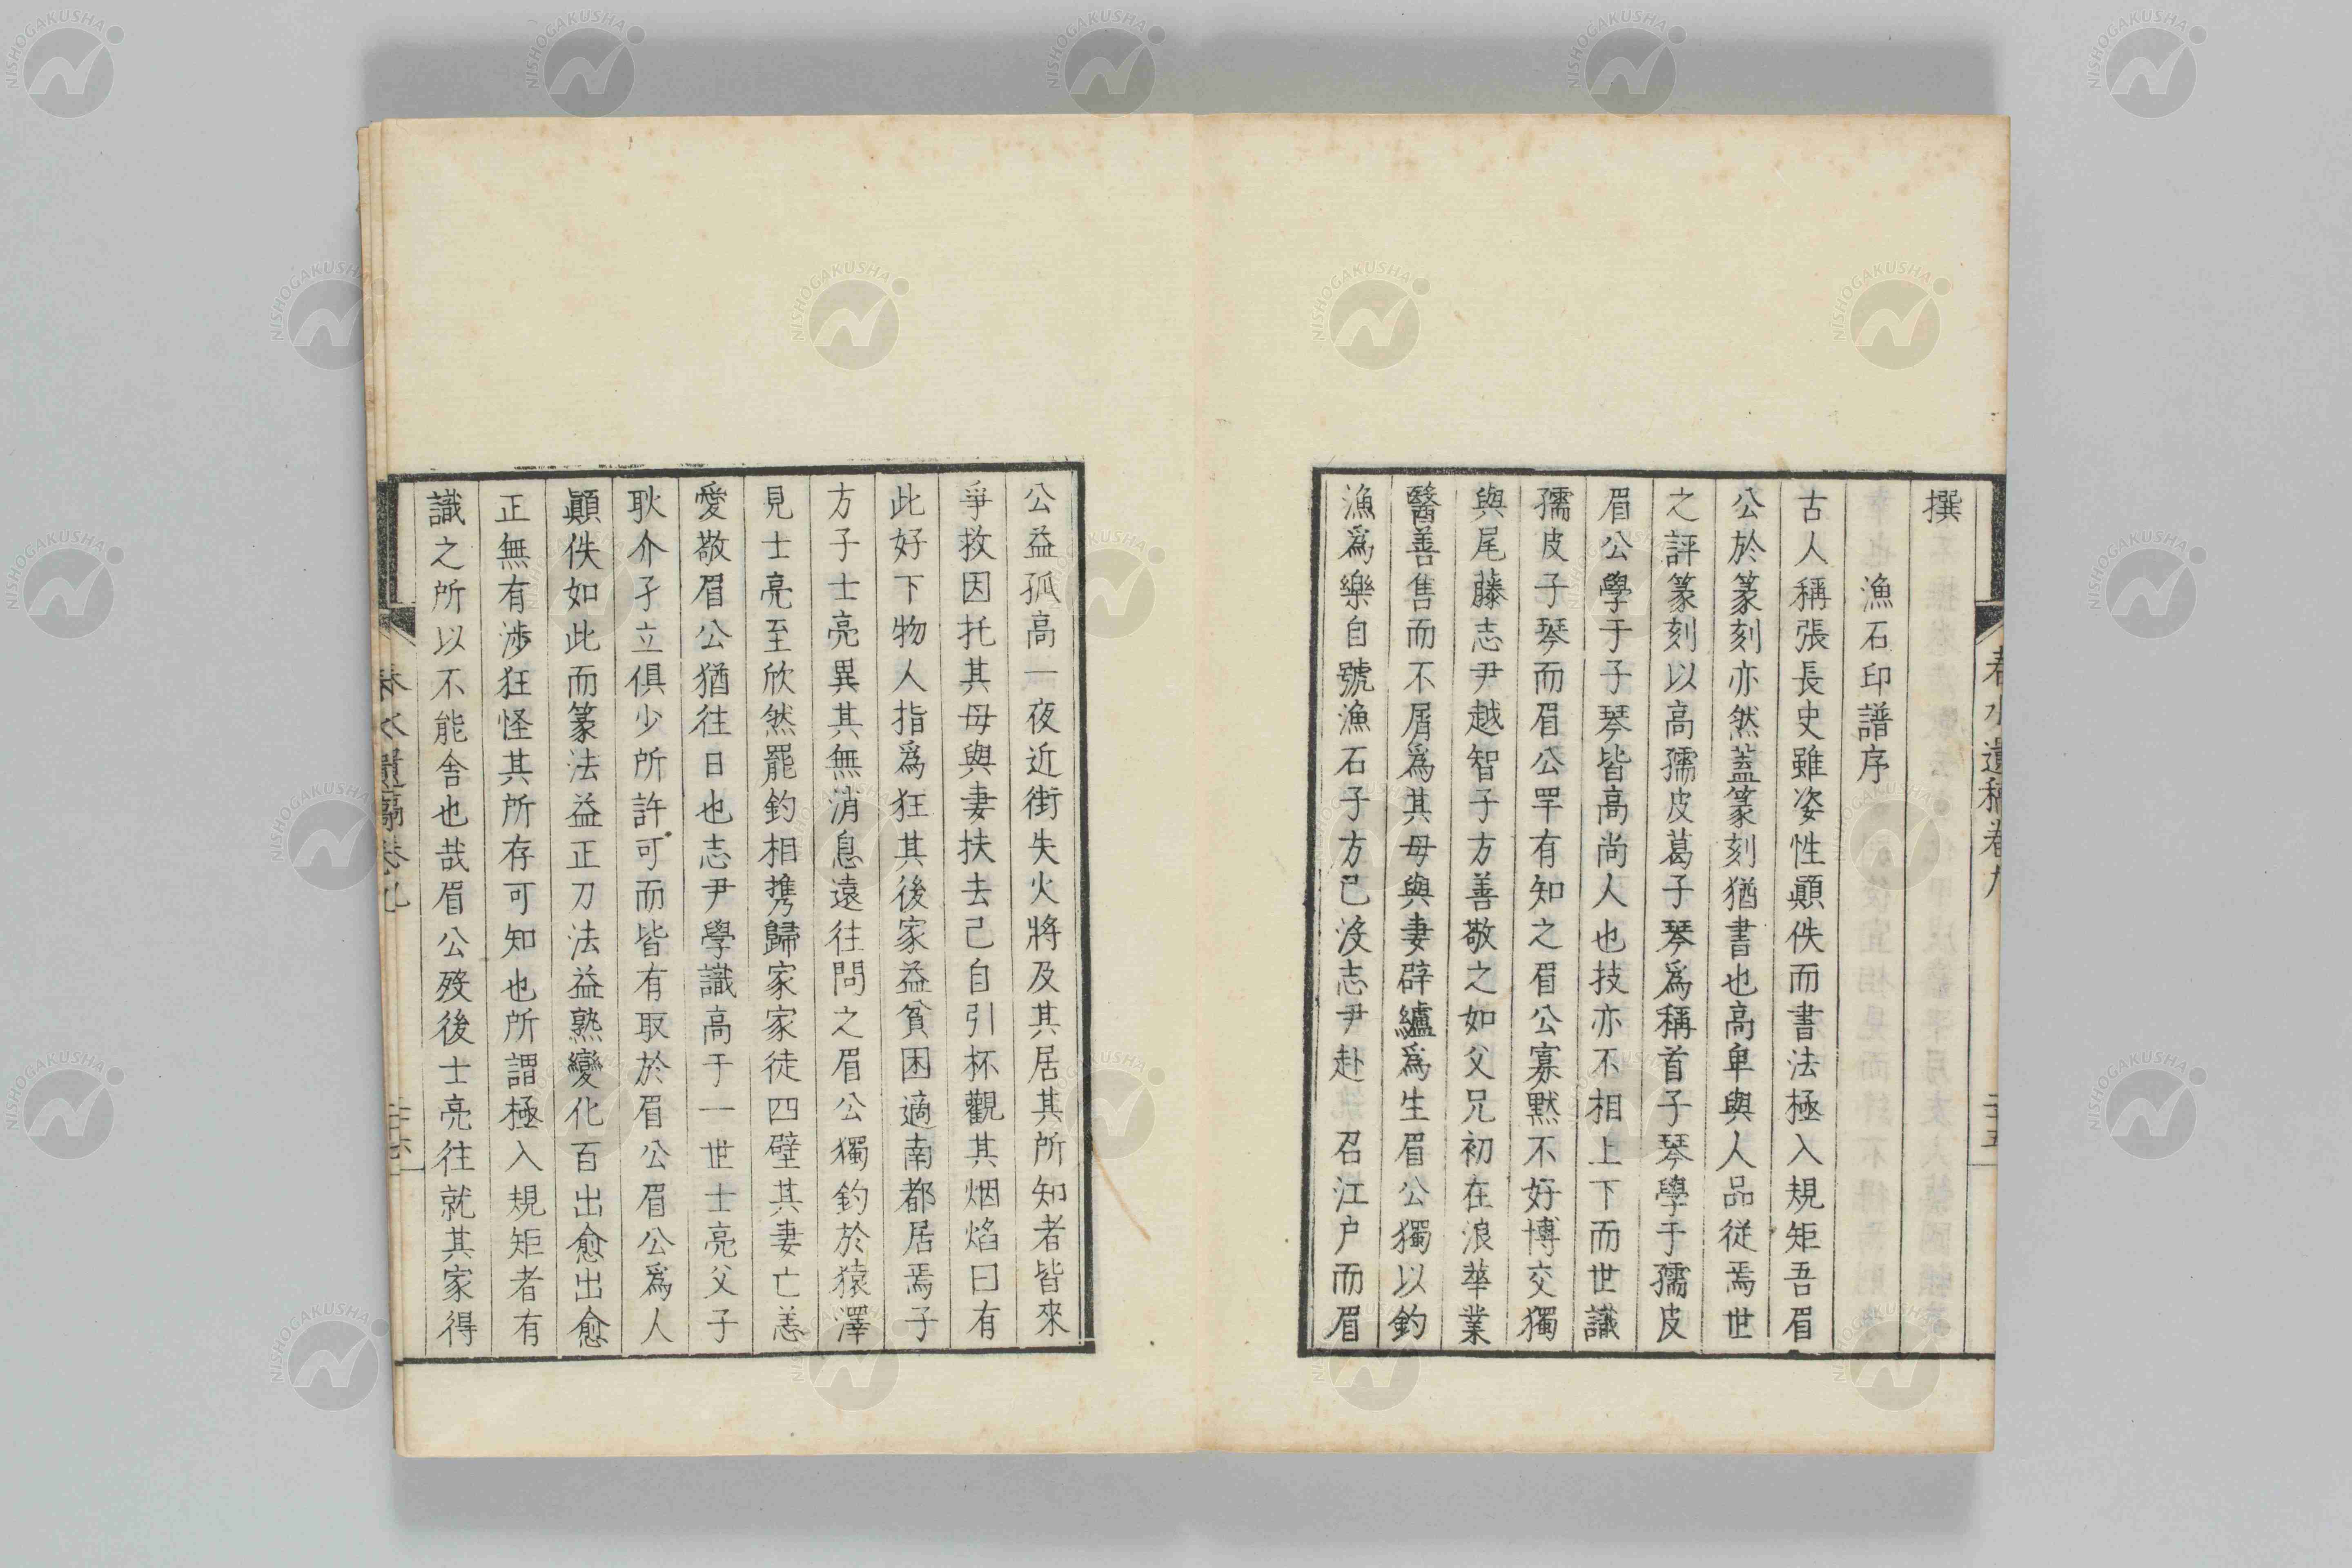 撰
漁石印譜序
古人稱張長史雖姿性顚佚而書法極入規矩吾眉
公於篆刻亦然蓋篆刻猶書也高卑與人品從焉世
之評篆刻以高孺皮葛子琴爲稱首子琴學于孺皮
眉公學于子琴皆高尚人也技亦不相上下而世識
孺皮子琴而眉公罕有知之眉公寡黙不好博交獨
與尾藤志尹越智子方善敬之如父兄初在浪華業
醫善售而不屑爲其母與妻辟纑爲生眉公獨以釣
漁爲樂自號漁石子方已沒志尹赴召江戶而眉
公益孤高一夜近街失火將及其居其所知者皆來
爭救因托其母與妻扶去己自引杯觀其烟焰曰有
此好下物人指爲狂其後家益貧困適南都居焉子
方子士亮異其無消息遠往問之眉公獨釣於猿澤
見士亮至欣然罷釣相携歸家家徒四壁其妻亡恙
愛敬眉公猶往日也志尹學識高于一世士亮父子
耿介孑立俱少所許可而皆有取於眉公眉公爲人
顚佚如此而篆法益正刀法益熟變化百出愈出愈
正無有渉狂怪其所存可知也所謂極入規矩者有
識之所以不能舍也哉眉公歿後士亮往就其家得
春水遺稿卷九
二十五
春水遺稿卷九
二十六
NISHOGAKUSHA